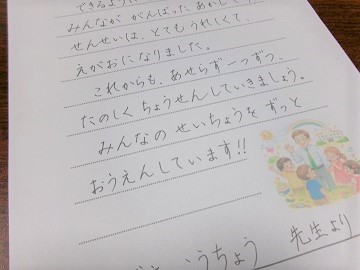 できるように
みんなが がんばった
せんせいは、とても うれしくて、
えがおに なりました。
これからも、あせらず 一つずつ、
たのしく ちょうせんしていきましょう。
みんなの せいちょうを ずっと
おうえんしています!!
うちょう 先生より